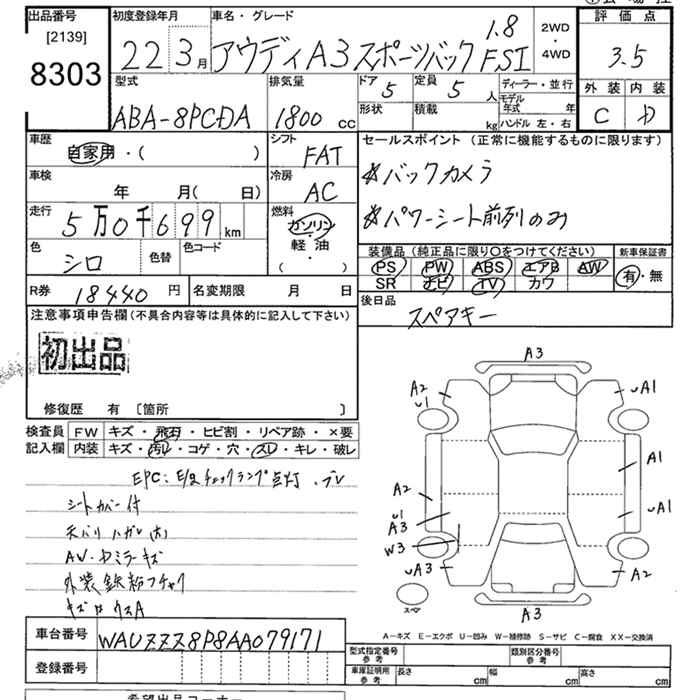 出品番号
[2139]
8303
初度登録年月
22 3月
車名・グレード
アウディA3 スポーツバック 1.8 FSI
2WD
・
4WD
評価点
3.5
外装 内装
C D
型式
ABA-8PCDA
排気量
1800 cc
ドア
5
定員
5 人
形状
積載
kg
ディーラー・並行
モデル年式 年
ハンドル 左・右
車歴
自家用・( )
シフト
FAT
セールスポイント (正常に機能するものに限ります)
☆バックカメラ
☆パワーシート前列のみ
車検
年 月( 日)
冷房
AC
走行
5万0千699km
燃料
ガソリン・
軽油
・( )
色
シロ
色替
色コード
装備品 (純正品に限り○をつけてください)
PS PW ABS エアB AW
SR ナビ TV カワ
新車保証書
有・無
R券
18440円
名変期限 月 日
後日品
スペアキー
注意事項申告欄(不具合内容等は具体的に記入して下さい)
初出品
修復歴 有 〔箇所 〕
検査員
記入欄
FW キズ・飛石・ヒビ割・リペア跡・×要
内装 キズ・汚レ・コゲ・穴・スレ・キレ・破レ
EPC:E/gチェックランプ点灯
シートカバー付
外装鉄粉フチャク
A3
A2
U1
UA1
A1
A2
U1
A3
UA1
W3
UA3
A2
A3
スペア
A-キズ E-エクボ U-凹み W-補修跡 S-サビ C-腐食 XX-交換済
車台番号
WAUZZZ8P8AA079171
登録番号
型式指定番号
参考
類別区分番号
参考
車庫証明用
参考
長さ cm
幅 cm
高さ cm
希望出品コーナー